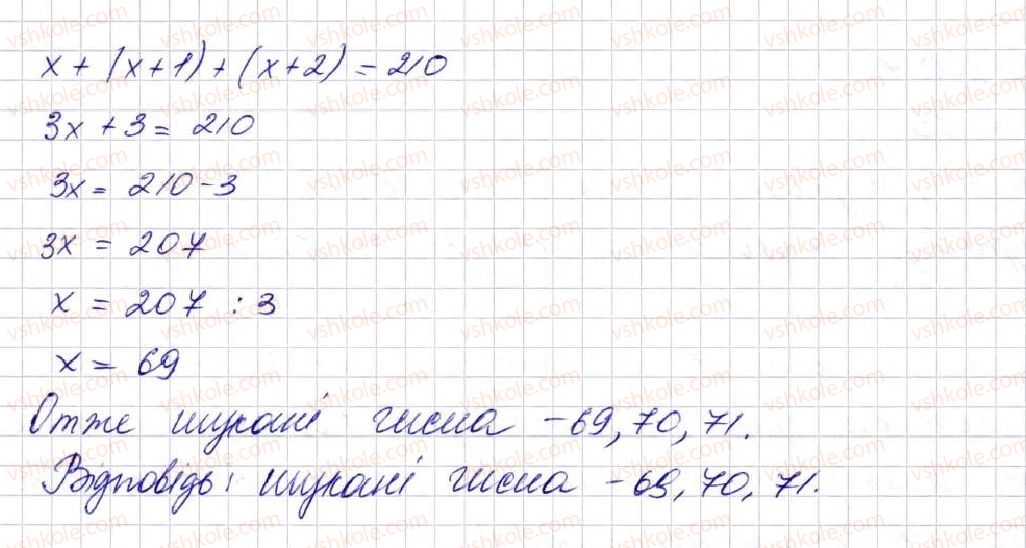 x + (x+1) + (x+2) = 210
3x + 3 = 210
3x = 210 - 3
3x = 207
x = 207 : 3
x = 69
Отже шукані числа - 69, 70, 71.
Відповідь: шукані числа - 69, 70, 71.